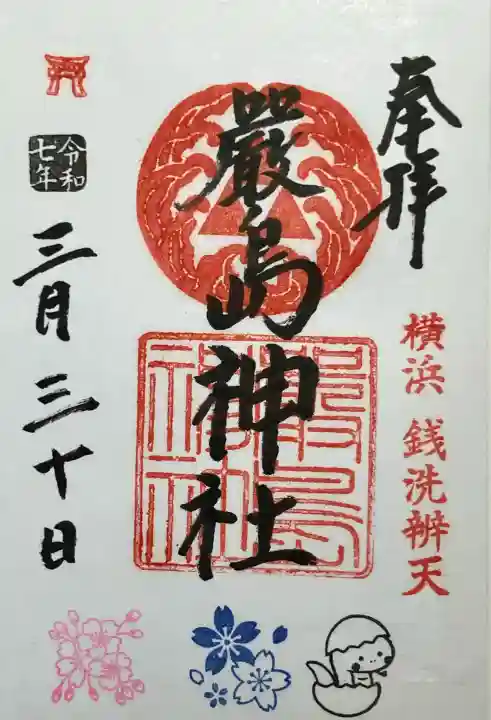 奉拝
横浜 銭洗辨天
嚴島神社
嚴島神社
令和七年
三月三十日